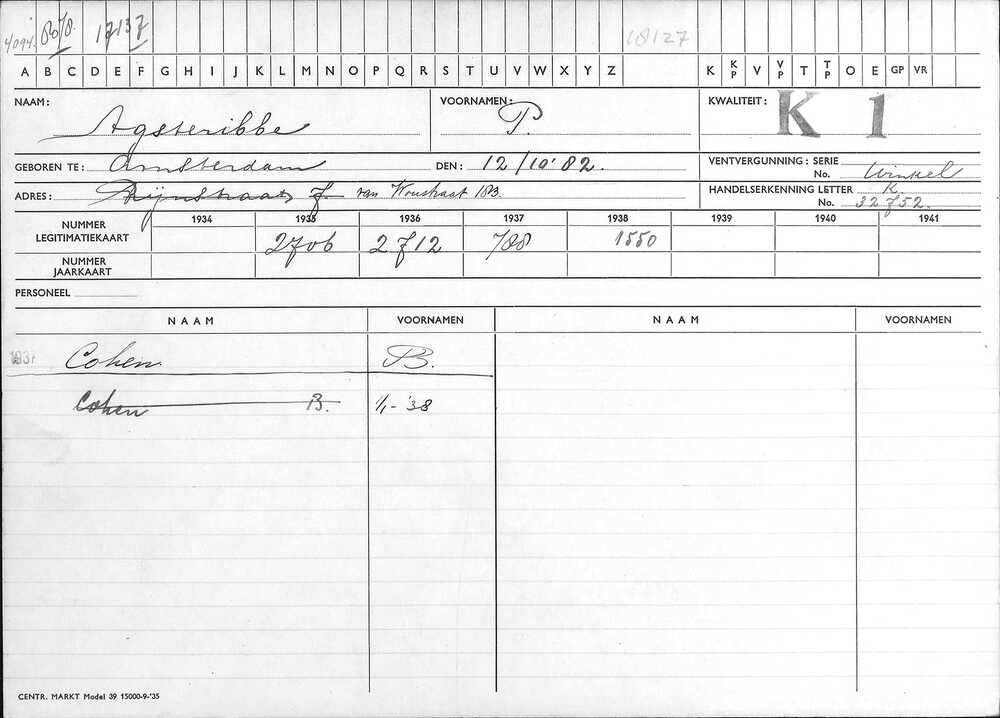 4094. 17137 18127
A B C D E F G H I J K L M N O P Q R S T U V W X Y Z K KP V VP T TP O E GP VR
NAAM: Agsteribbe VOORNAMEN: P. KWALITEIT: K 1
GEBOREN TE: Amsterdam DEN: 12/10' 82. VENTVERGUNNING: SERIE
No. Winkel
ADRES: Rijnstraat 7. van Woustraat 183. HANDELSERKENNING LETTER K.
No. 32752.
1934 1935 1936 1937 1938 1939 1940 1941
NUMMER LEGITIMATIEKAART 2706 2712 788 1550
NUMMER JAARKAART
PERSONEEL
NAAM VOORNAMEN NAAM VOORNAMEN
1937 Cohen B.
Cohen B. 1/1-'38
CENTR. MARKT Model 39 15000-9-'35